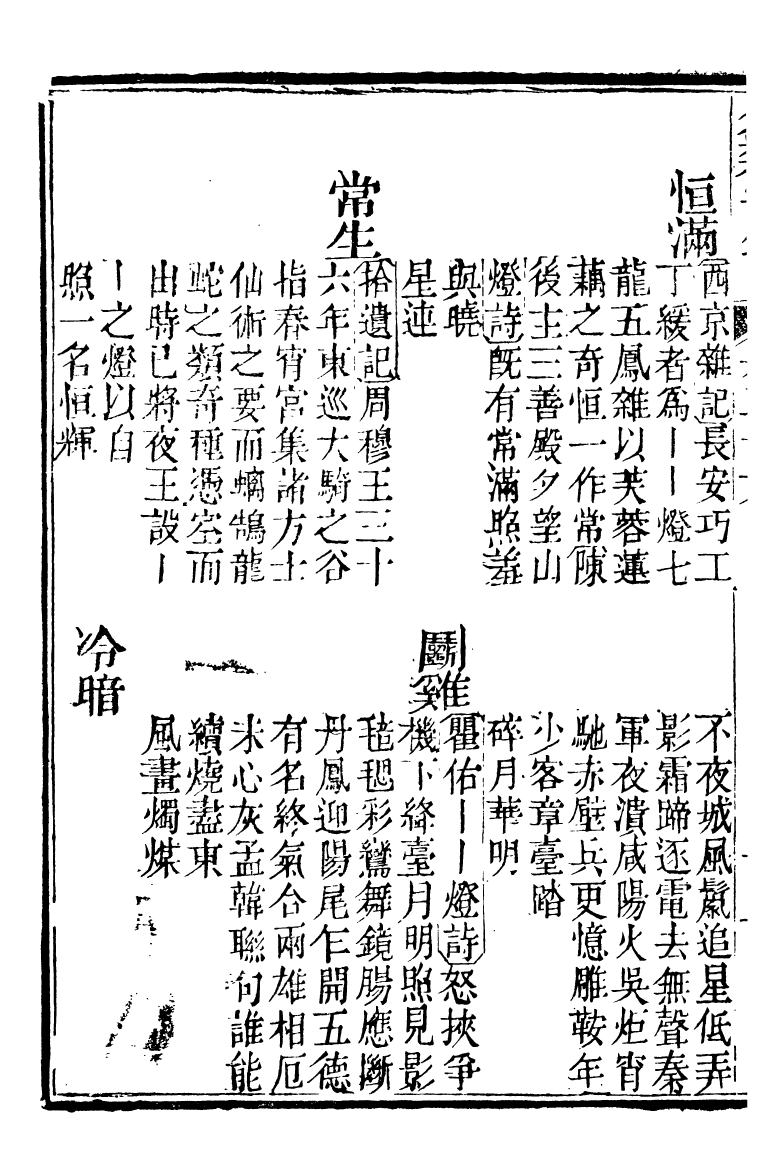 恒滿
西京雜記長安巧工
丁緩者爲丨丨燈七
龍五鳳雜以芙蓉蓮
藕之奇恒一作常陳
後主三善殿夕望山
燈詩旣有常滿照羞
與曉
星連
常生
拾遺記周穆王三十
六年東巡大騎之谷
指春宵宮集諸方士
仙術之要而螭鵠龍
蛇之類奇種憑空而
出時已將夜王設丨
丨之燈以自
照一名恒輝
不夜城風鬣追星低弄
影霜蹄逐電去無聲秦
軍夜潰咸陽火吳炬宵
馳赤壁兵更憶雕鞍年
少客章臺踏
碎月華明
鬬雞
瞿佑丨丨燈詩怒挾爭
機下絳臺月明照見影
毰毸彩鸞舞鏡腸應斷
丹鳳迎陽尾乍開五德
有名終氣合兩雄相厄
未心灰孟韓聯句誰能
續燒盡東
風畫燭煤
冷暗